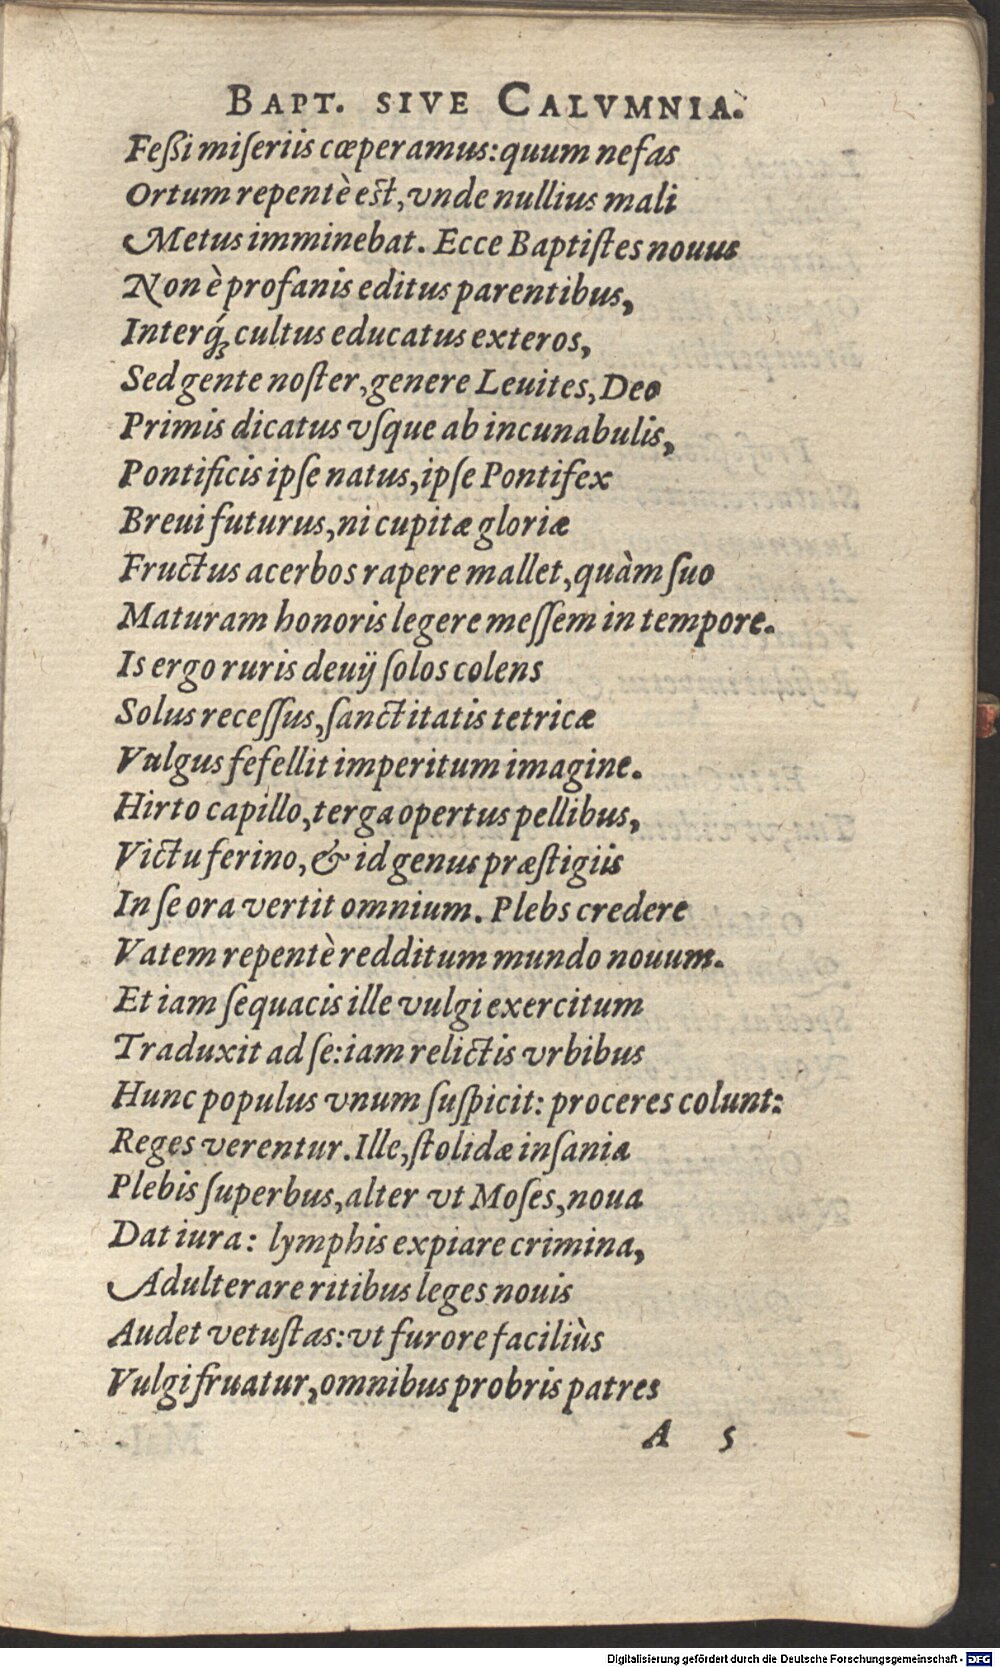 BAPT. SIVE CALVMNIA.
Feßi miſeriis cœperamus: quum nefas
Ortum repentè eſt, vnde nullius mali
Metus imminebat. Ecce Baptiſtes nouus
Non è profanis editus parentibus,
Interq́ꝫ cultus educatus exteros,
Sed gente noſter, genere Leuites, Deo
Primis dicatus vſque ab incunabulis,
Pontificis ipſe natus, ipſe Pontifex
Breui futurus, ni cupitæ gloriæ
Fructus acerbos rapere mallet, quàm ſuo
Maturam honoris legere meſſem in tempore.
Is ergo ruris deuij ſolos colens
Solus receſſus, ſanctitatis tetricæ
Vulgus fefellit imperitum imagine.
Hirto capillo, terga opertus pellibus,
Victu ferino, & id genus præſtigiis
In ſe ora vertit omnium. Plebs credere
Vatem repentè redditum mundo nouum.
Et iam ſequacis ille vulgi exercitum
Traduxit ad ſe: iam relictis vrbibus
Hunc populus vnum ſuſpicit: proceres colunt:
Reges verentur. Ille, ſtolidæ inſania
Plebis ſuperbus, alter vt Moſes, noua
Dat iura: lymphis expiare crimina,
Adulterare ritibus leges nouis
Audet vetuſtas: vt furore faciliùs
Vulgi fruatur, omnibus probris patres
A 5
Digitalisierung gefördert durch die Deutsche Forschungsgemeinschaft - DFG